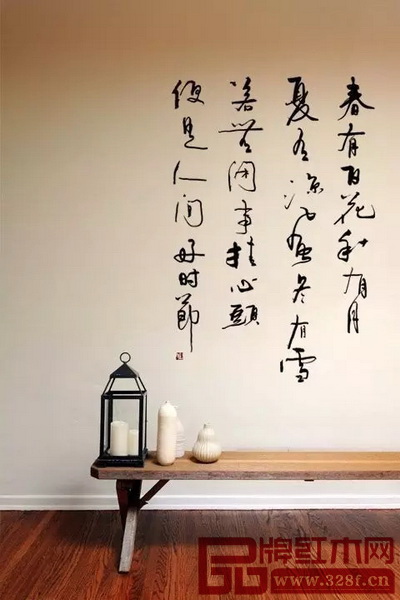 春有百花秋有月
夏有凉风冬有雪
若无闲事挂心頭
便是人间好时節
品牌红木网
www.328f.cn